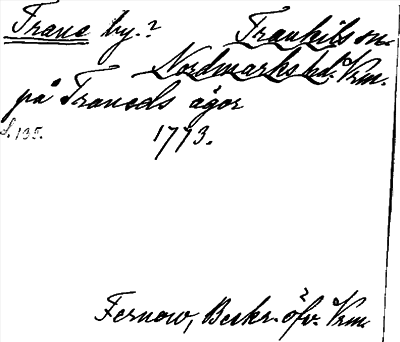 Trane by.? Trankils sn.
Nordmarks hd. Vrm.
på Traneds ägor
s. 135. 1773.
Fernow, Beskr. öfv. Vrm.